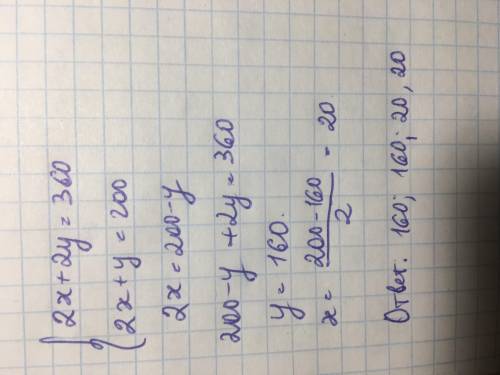 { 2x + 2y = 360
2x + y = 200
2x = 200 - y
200 - y + 2y = 360
y = 160.
x = (200 - 160)/2 = 20.
Ответ. 160; 160; 20, 20